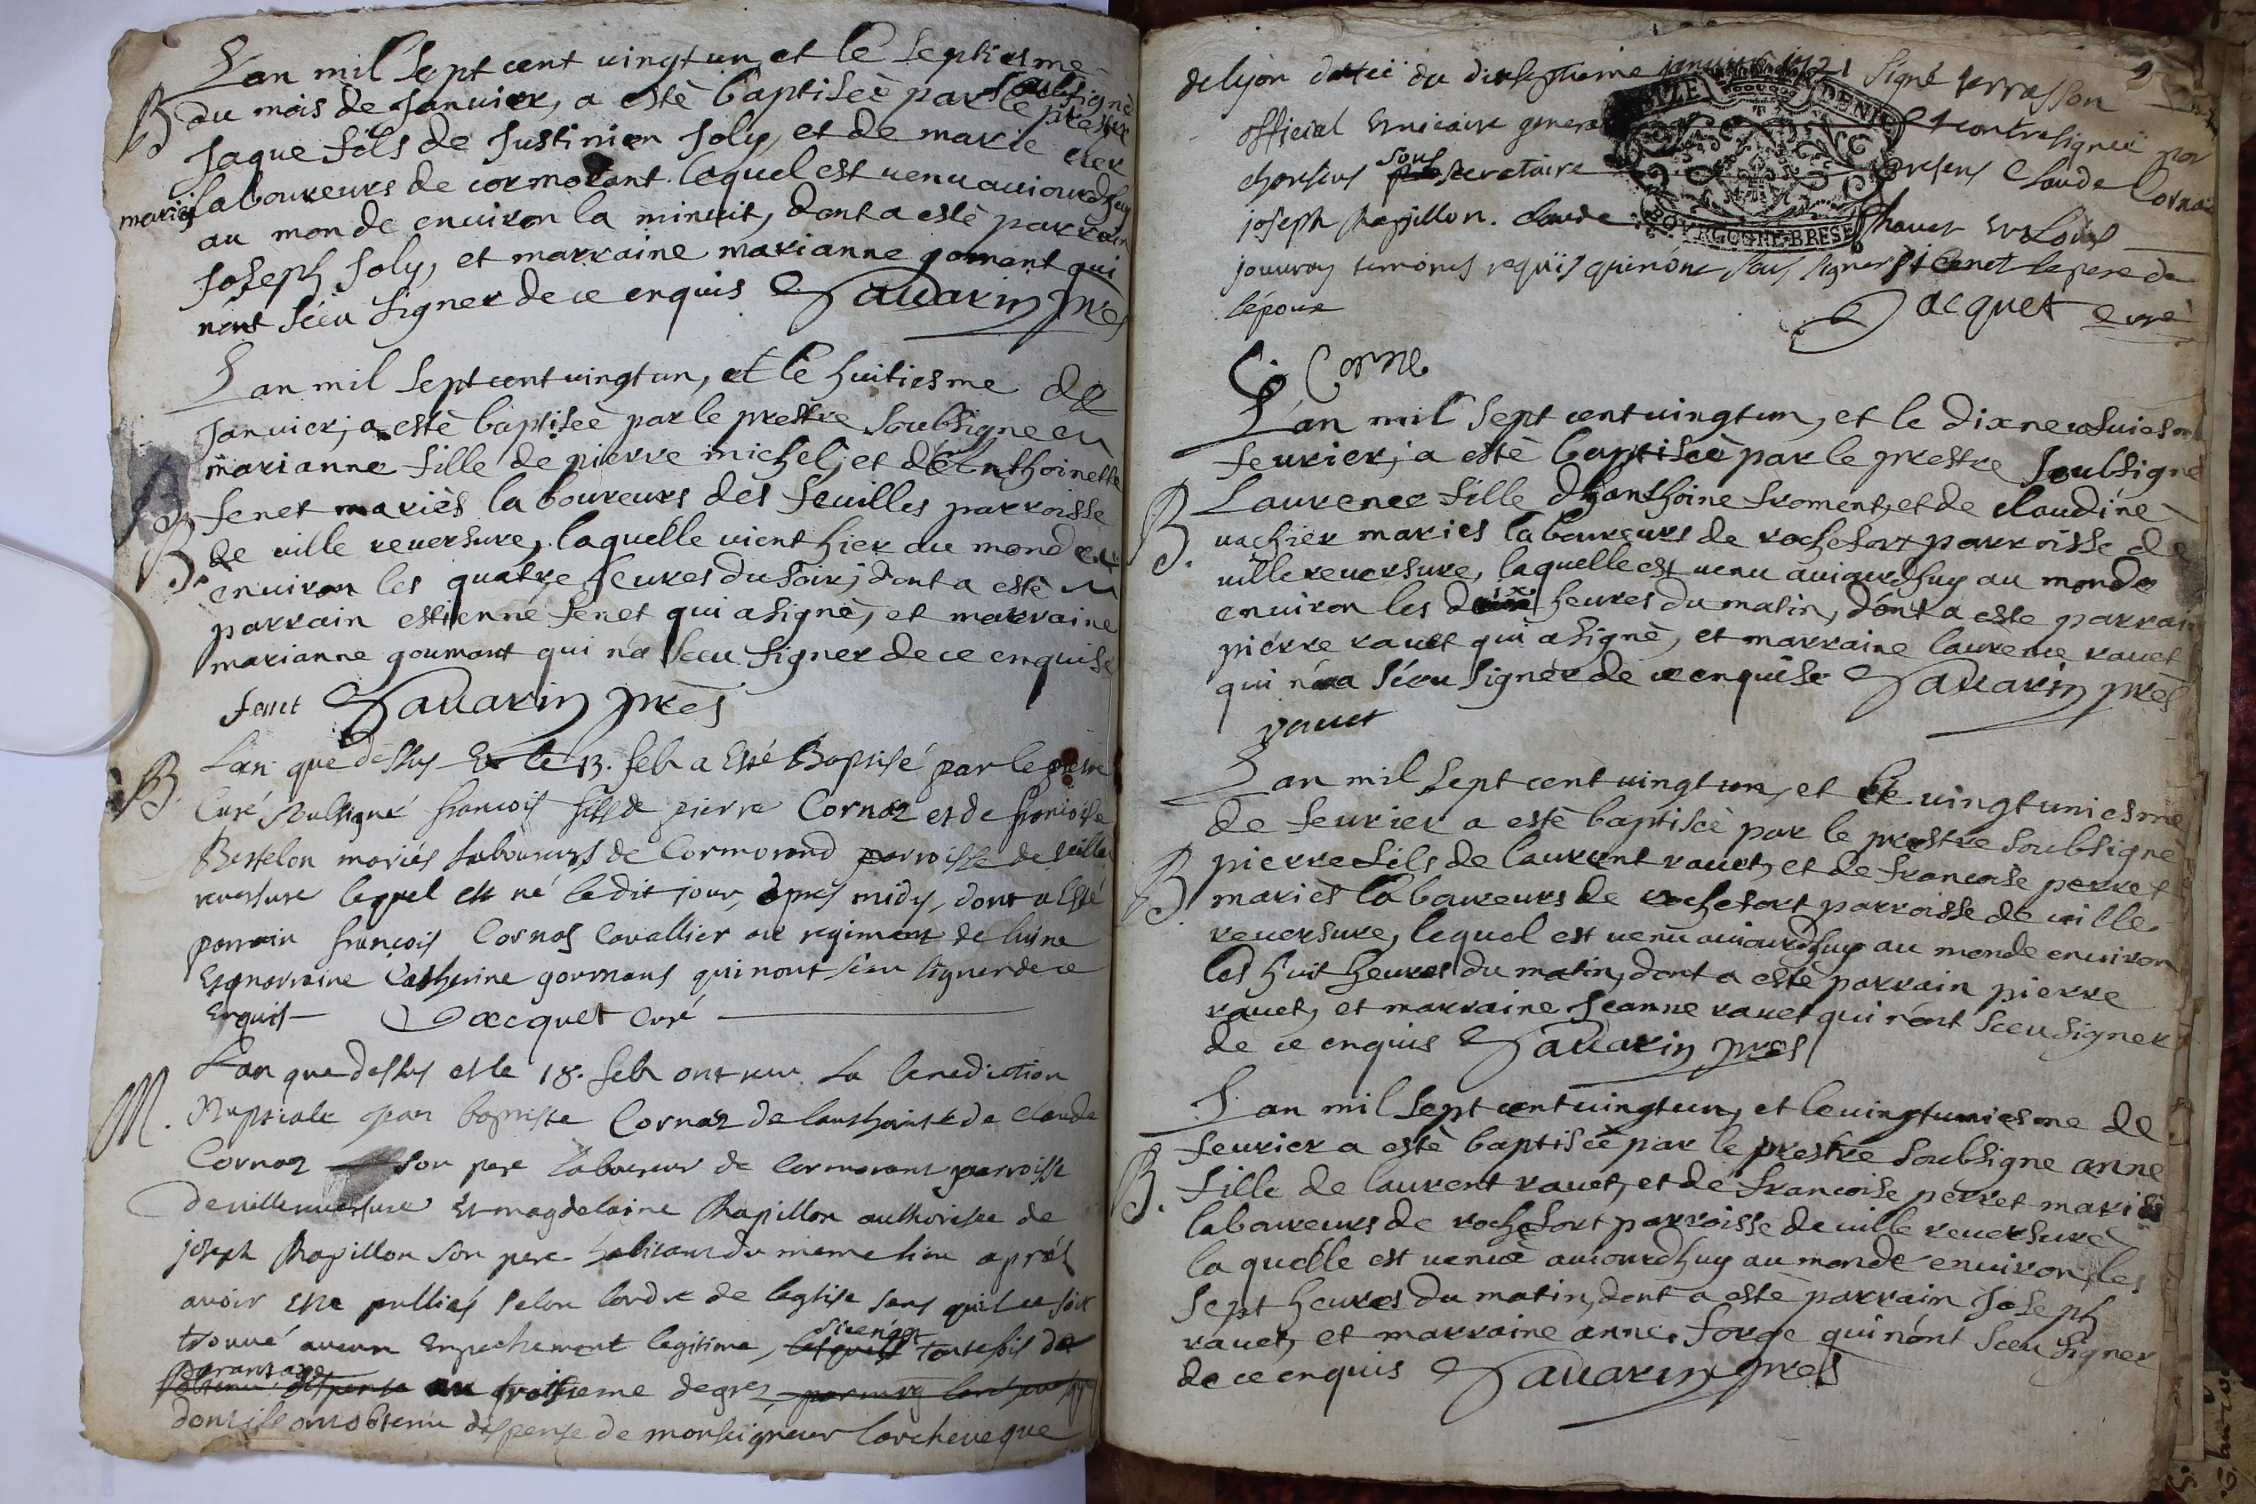 L'an mil sept cent vingtun, et le septiesme
B du mois de Janvier, a estè baptiseè par le prestre soubsignè
Jaque fils de Justinien Joly, et de marie
mariés laboureurs de cormorant lequel est venu auiourdhuy
au monde environ la minuit, dont a estè parrain
Joseph Joly, et marraine marianne gomant qui
n'ont sceu signer de ce enquis Savarin prés
L'an mil sept cent vingtun, et le huitiesme de
Janvier, a estè baptiseè par le prestre soubsigne
marianne fille de pierre michel, et d'Anthoinette
fenet mariès laboureurs des feuilles parroisse
B. de ville reversure, laquelle vient hier au monde
environ les quatre heures du soir, dont a estè
parrain estienne fenet qui a signè, et marraine
marianne goumant qui n'a sceu signer de ce enquise
fenet Savarin prés
B. L'an que dessus Et le 13. feb a Esté Baptisé par le
Curé soubsigné francois fils de pierre Cornaz et de francoise
Bertelon mariés laboureurs de Cormorand parroisse de ville
reversure lequel est né ledit jour, apres midy, dont a Esté
parrain françois Cornas Cavallier au regiment de
Et marraine Catherine gormans qui nont sceu signer de ce
Enquis Jacquet Curé
M. L'an que dessus et le 18. feb ont receu la benediction
Nuptiale Jean baptiste Cornaz de lauthorité de Claude
Cornaz son pere laboureur de Cormorant parroisse
de villereversure Et magdelaine Rapillon authorisée de
joseph Rapillon son pere habitant du meme lieu aprés
avoir Esté publiés selon lordre de leglise sans quil se soit
trouvé aucun Empechement legitime, si cenest toutefois de
parantage au troisieme degres
dont ils ont obtenu dispense de monseigneur larcheveque
de lyon dattée du dixseptieme janvier 1721 signé terrasson
official Et vicaire general Et contresigneé par
chorsens sous secretaire presens Claude Cornaz
joseph Rapillon. Claude Et Louis
jouvray temoins requis qui nont sceu signer si cenest le pere de
lépoux Jacquet Curé
C. Corne
L'an mil sept cent vingtun, et le dixneufviesme
fevrier, a estè baptiseè par le prestre soubsigné
Laurence fille d'anthoine froment, et de claudine
B. vachier mariés laboureurs de rochefort parroisse de
ville reversure, laquelle est venu auiourdhuy au monde
environ les dix heures du matin, dont a este parrain
pierre ravet qui a signè, et marraine laurence ravet
qui n'a sceu signer de ce enquise Savarin prés
ravet
L'an mil sept cent vingtun, et le vingtuniesme
de fevrier a estè baptiseè par le prestre soubsigné
B. pierre fils de laurent ravet, et de francoise perret
mariès laboureurs de rochefort parroisse de ville
reversure, lequel est venu auiourdhuy au monde environ
les huit heures du matin, dont a estè parrain pierre
ravet, et marraine Jeanne ravet qui n'ont sceu signer
de ce enquis Savarin prés
L'an mil sept cent vingtun, et le vingtuniesme de
fevrier a estè baptiseè par le prestre soubsigne anne
B. fille de laurent ravet, et de francoise perret mariés
laboureurs de rochefort parroisse de ville reversure
laquelle est venuè auiourdhuy au monde environ les
sept heures du matin, dont a estè parrain Joseph
ravet, et marraine anne forge qui n'ont sceu signer
de ce enquis Savarin prés